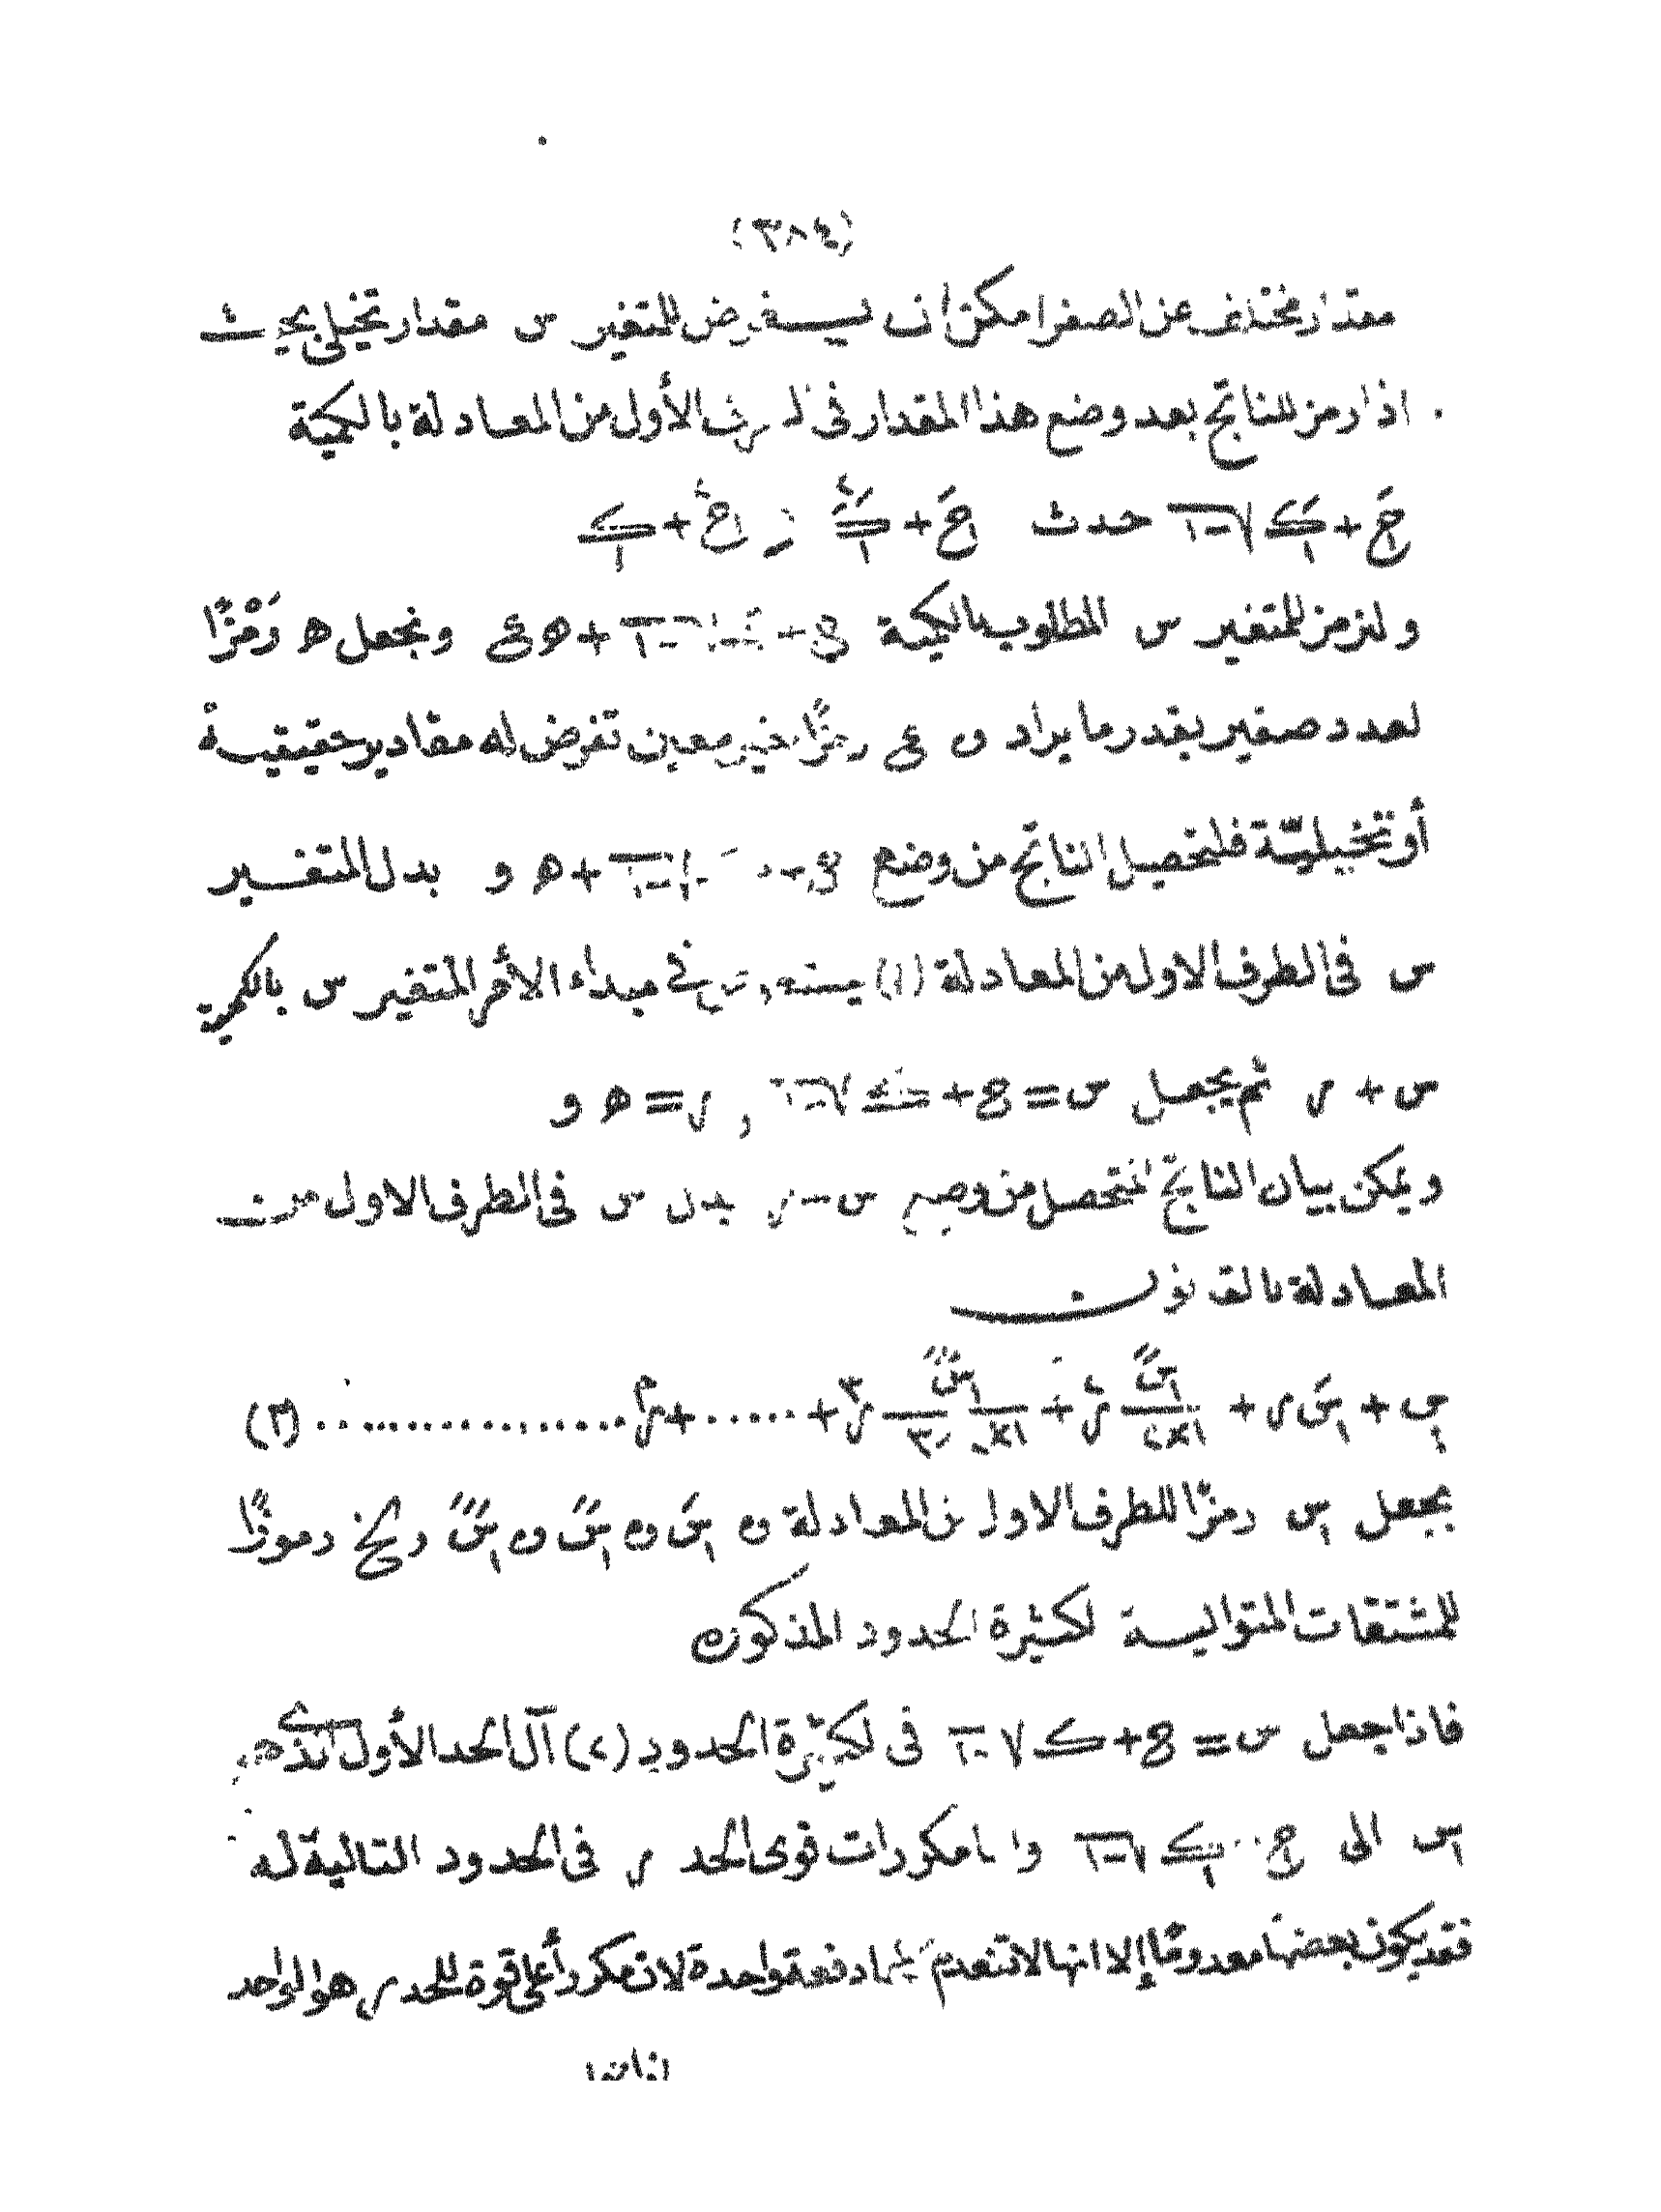 (٣٨٤)
مقدار مختلف عن الصفر امكن ان يفرض للمتغير س مقدار تخيلى بحيث
اذا رمز للناتج بعد وضع هذا المقدار فى الطرف الأول من المعادلة بالكمية
حدث
ولنرمز للمتغير س المطلوب بالكمية ونجعل ه رَمْزًا
لعدد صغير بقدر ما يراد و ع رمزًا غير معين تفرض له مقادير حقيقية
أو تخيلية فلتحصيل الناتج من وضع ع + ك √-١ + ه و بدل المتغير
س فى الطرف الاول من المعادلة (١) يستعوض فى مبداء الأمر المتغير س بالكمية
س + م ثم يجعل س = ع + ك √-١ , م = ه و
ويمكن بيان الناتج المتحصل من وضع س + م بدل س فى الطرف الاول من
المعادلة بالقانون
+ ..... + (٢)
بجعل س رمزًا للطرف الاول من المعادلة و سَ و سً و سً وكخ رموزًا
للمشتقات المتوالية لكثيرة الحدود المذكوره
فاذا جعل س = ع + ك √-١ فى لكثيرة الحدود (٢) آل الحد الأول الذى هو
س الى ج + ك √-١ واما مكررات قوى الحد م فى الحدود التالية له
فقد يكون بعضها معدومًا إلا انها لا تنعدم كلها دفعة واحدة لان مكرر أعلى قوة للحد م هو الواحد